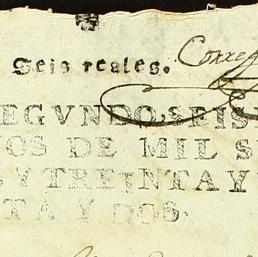 Seis reales.
EGVNDO, SEIS
OS DE MIL S
Y TREINTA Y
TA Y DOS.